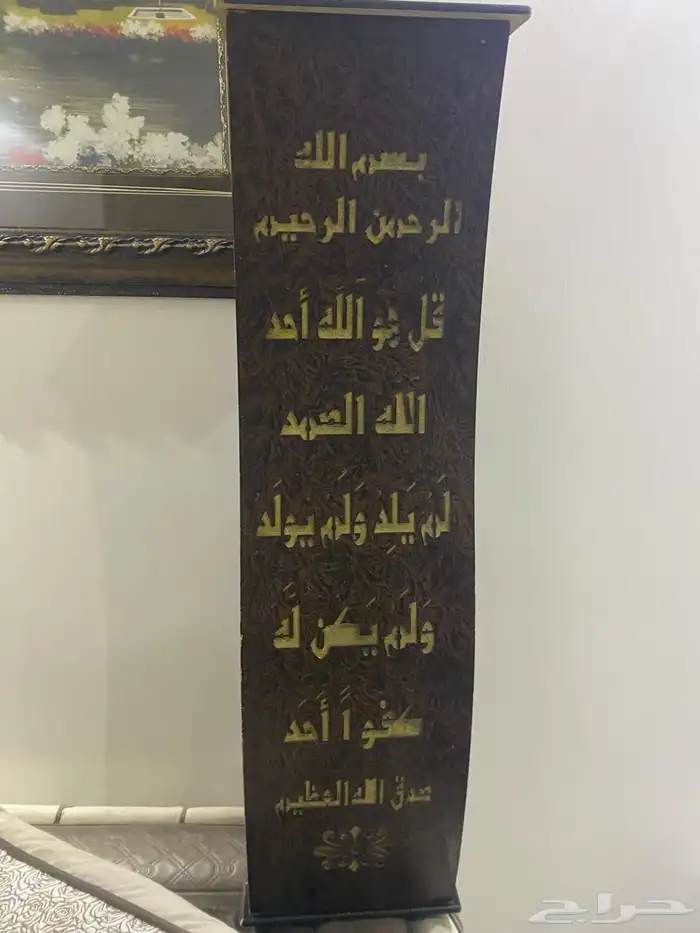 بسم الله
الرحمن الرحيم
قل هو اَللَه أحد
الله الصمد
لَم يَلِد وَلَم يولَد
وَلَم يَكن لَه
كفواً أَحَد
صدق الله العظيم
حراج